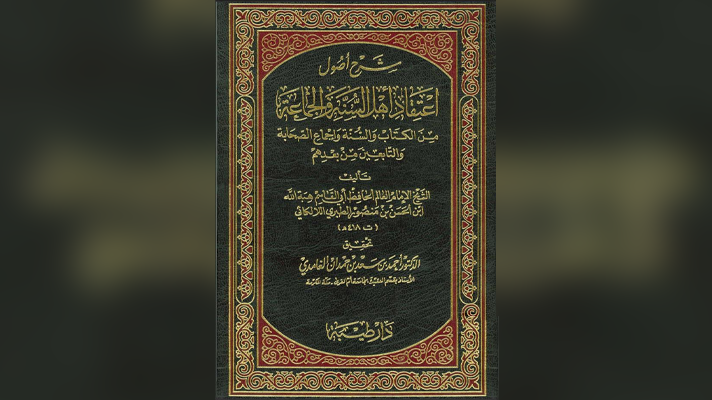 شرح أصول
اعتقاد أهل السنة والجماعة
من الكتاب والسنة وإجماع الصحابة
والتابعين من بعدهم
تأليف
الشيخ الإمام العالم الحافظ أبي القاسم هبة الله
ابن الحسن بن منصور الطبري اللالكائي
(ت ٤١٨ هـ)
تحقيق
الدكتور أحمد بن سعد بن حمدان الغامدي
دار طيبة